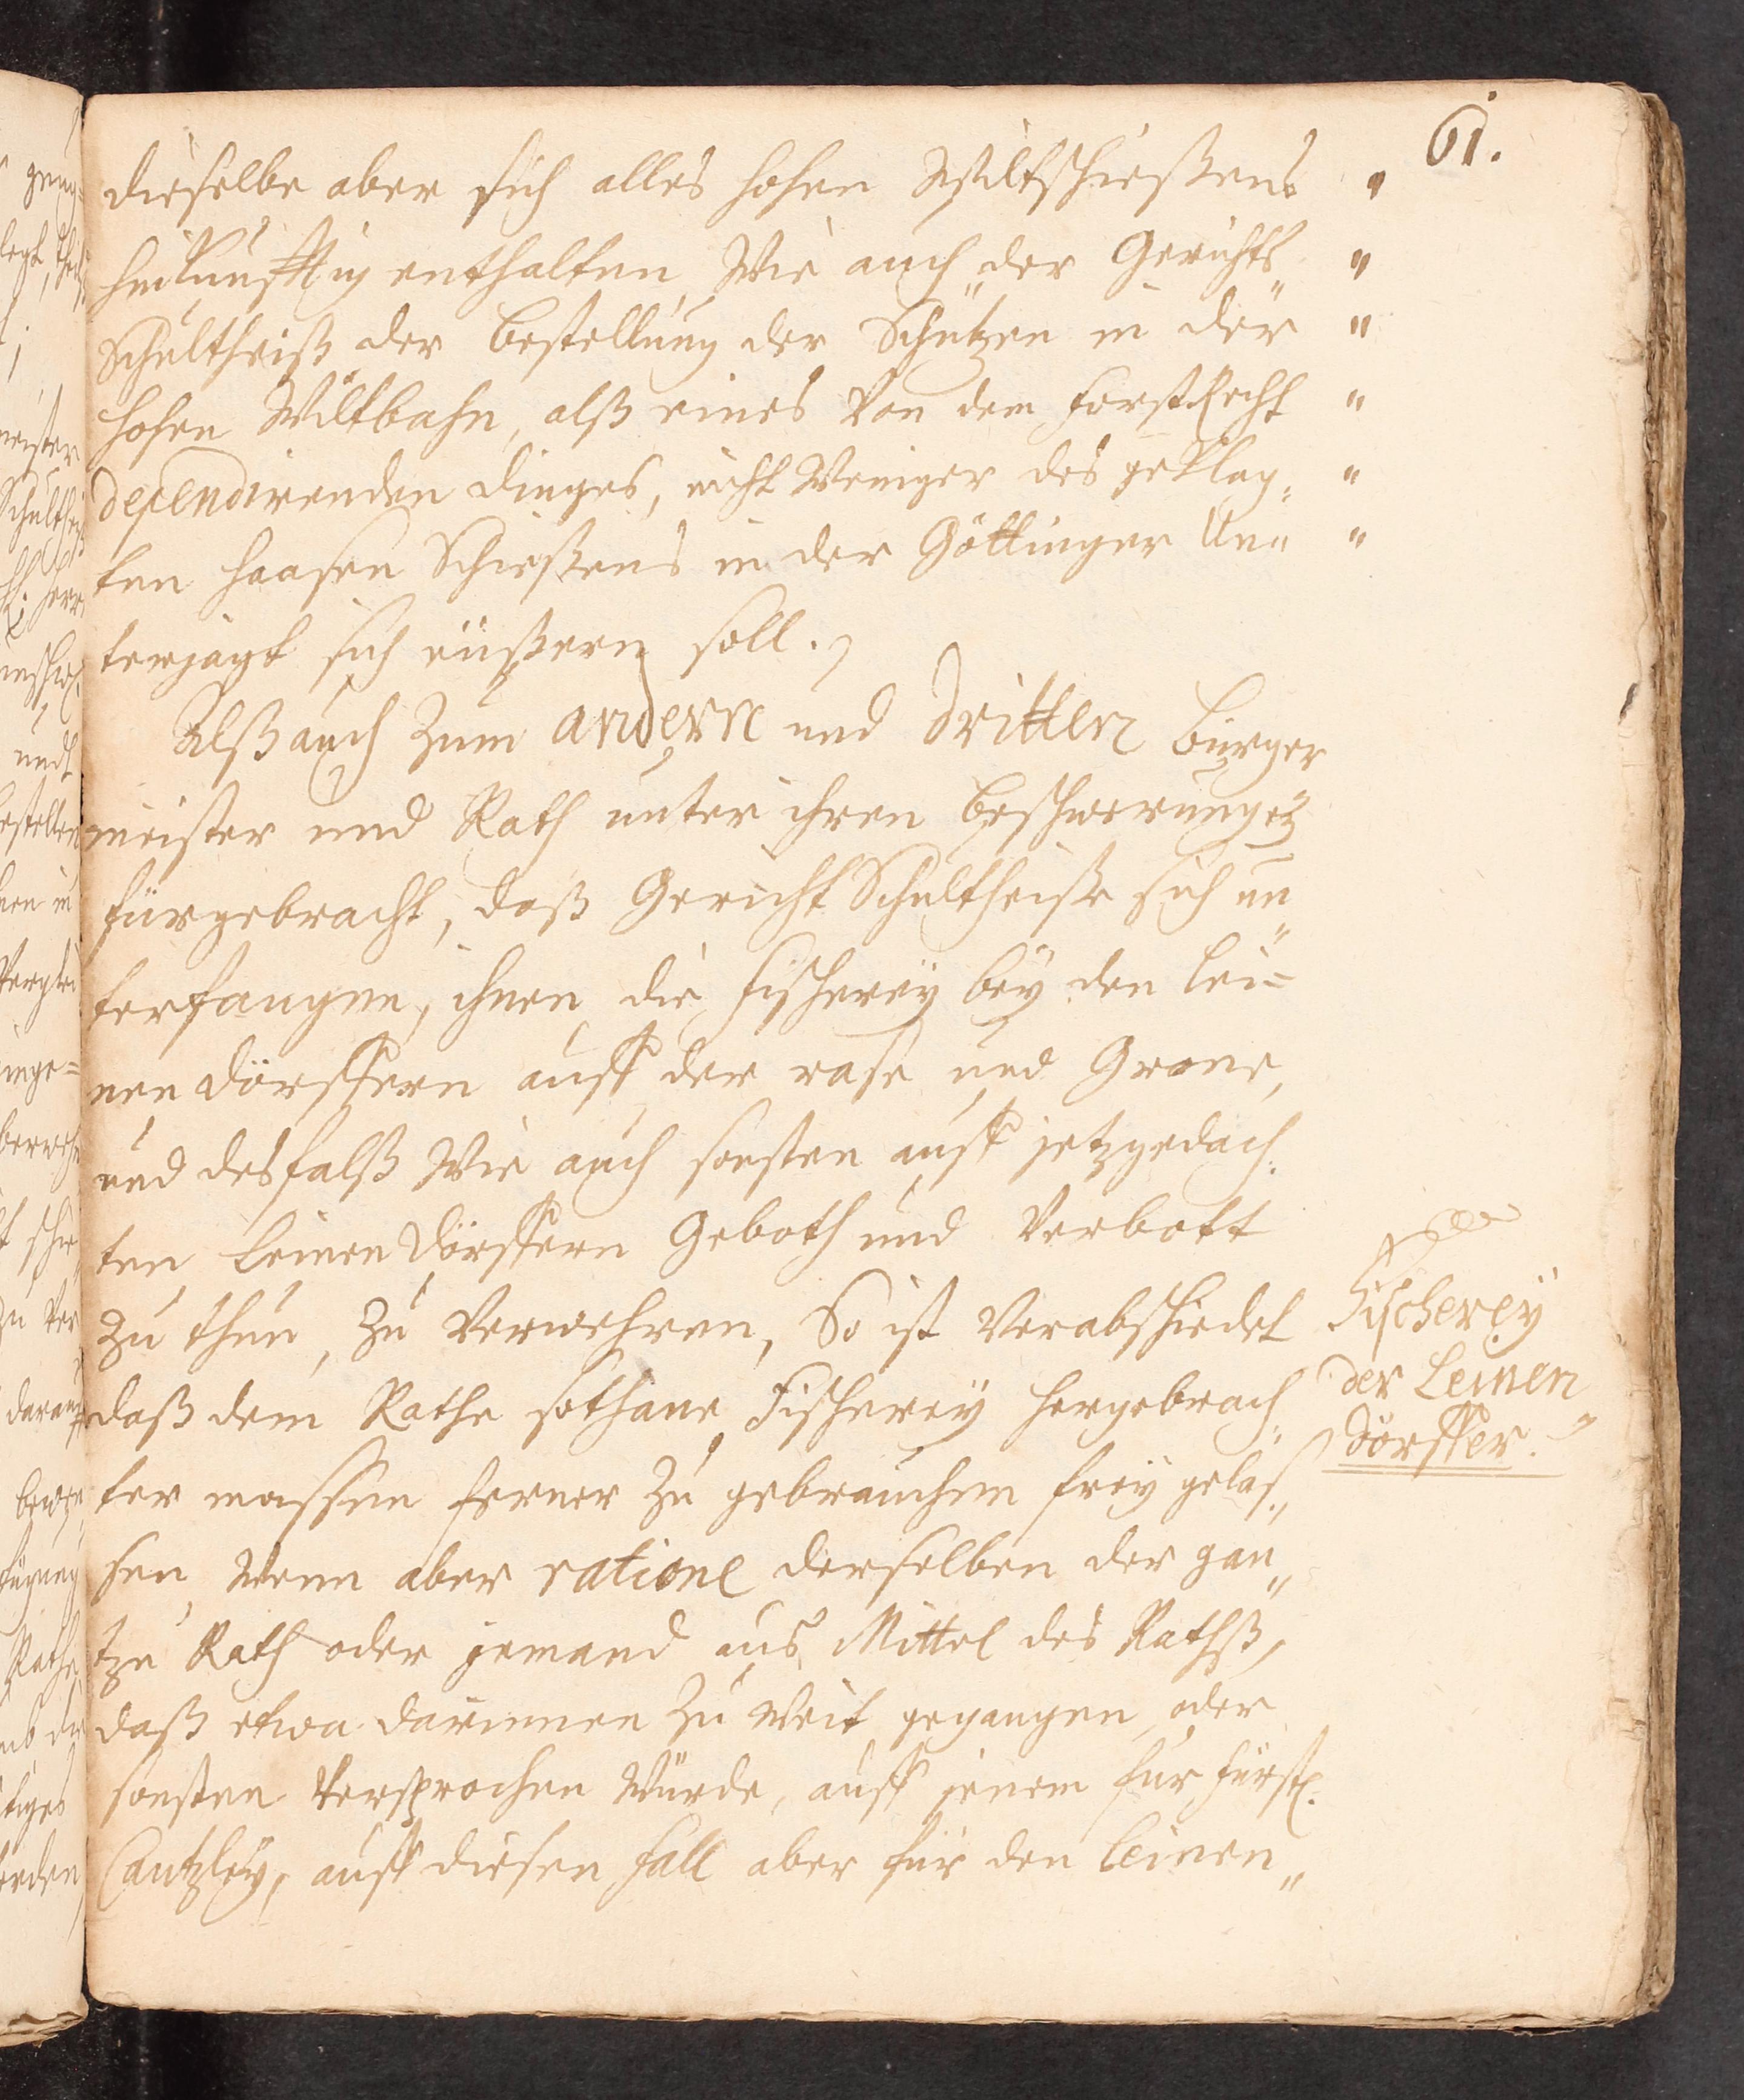 61.
dieselbe aber sich alles hohen Wiltschießens "
hinkünfftig enthalten, Wie auch der Gerichts„ "
Schultheiß der Bestellung der Schützen in der "
hohen Wiltbahn, alß eines Von dem ForstRecht "
dependirenden dinges, nicht Weniger des geklag„ "
ten Haasen Schießens in der Göttinger Un„ "
terjagt sich eüßern soll.
Alß auch zum andern und dritten Bürger
meister und Rath unter ihren Beschwerungen
fürgebracht, daß Gericht Schultheiße sich un„
terfangen, ihnen die Fischerey bey den Lei=
nen Dörffern auff der rase und Grone,
und desfalß Wie auch sonsten auff jetzgedach„
ten Leinen Dörffern Geboth und Verbott
zu thun, zu Verwehren, So ist Verabschiedet
daß dem Rathe sothane Fischerey hergebrach„
ter massen ferner zu gebrauchen frey gelas„
sen, Wenn aber ratione derselben der gan„
tze Rath oder jemand aus Mittel des Rathß,
daß etwa darinnen zu Weit gegangen, oder
sonsten Versprochen Würde, auff jenem für Fürstl.
Cantzley, auff diesen Fall aber für den Leinen„
Fischerey
der Leinen
dörffer.